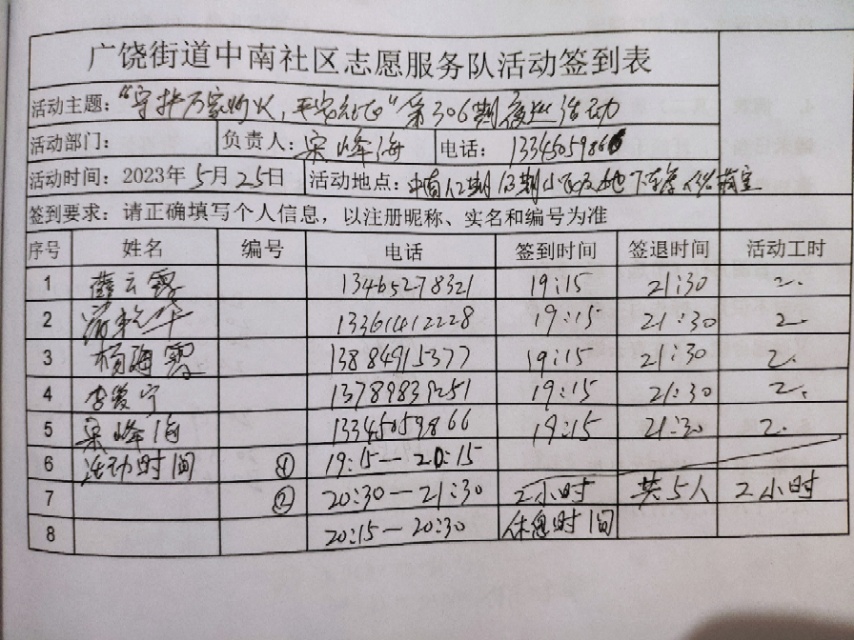 广饶街道中南社区志愿服务队活动签到表
活动主题：“守护万家灯火，平安社区”第306期夜巡活动
活动部门： 负责人：宋峰海 电话：13345059866
活动时间：2023年5月25日 活动地点：中南 期 期小区及地下车库
签到要求：请正确填写个人信息，以注册昵称、实名和编号为准
序号 姓名 编号 电话 签到时间 签退时间 活动工时
1 薛云霞 13465278321 19:15 21:30 2.
2 13361412228 19:15 21:30 2.
3 杨海霞 13884915377 19:15 21:30 2.
4 李爱宁 13789839251 19:15 21:30 2.
5 宋峰海 13345059866 19:15 21:30 2.
6 活动时间 ① 19:15—20:15
7 ② 20:30—21:30 2小时 共5人 2小时
8 20:15—20:30 休息时间